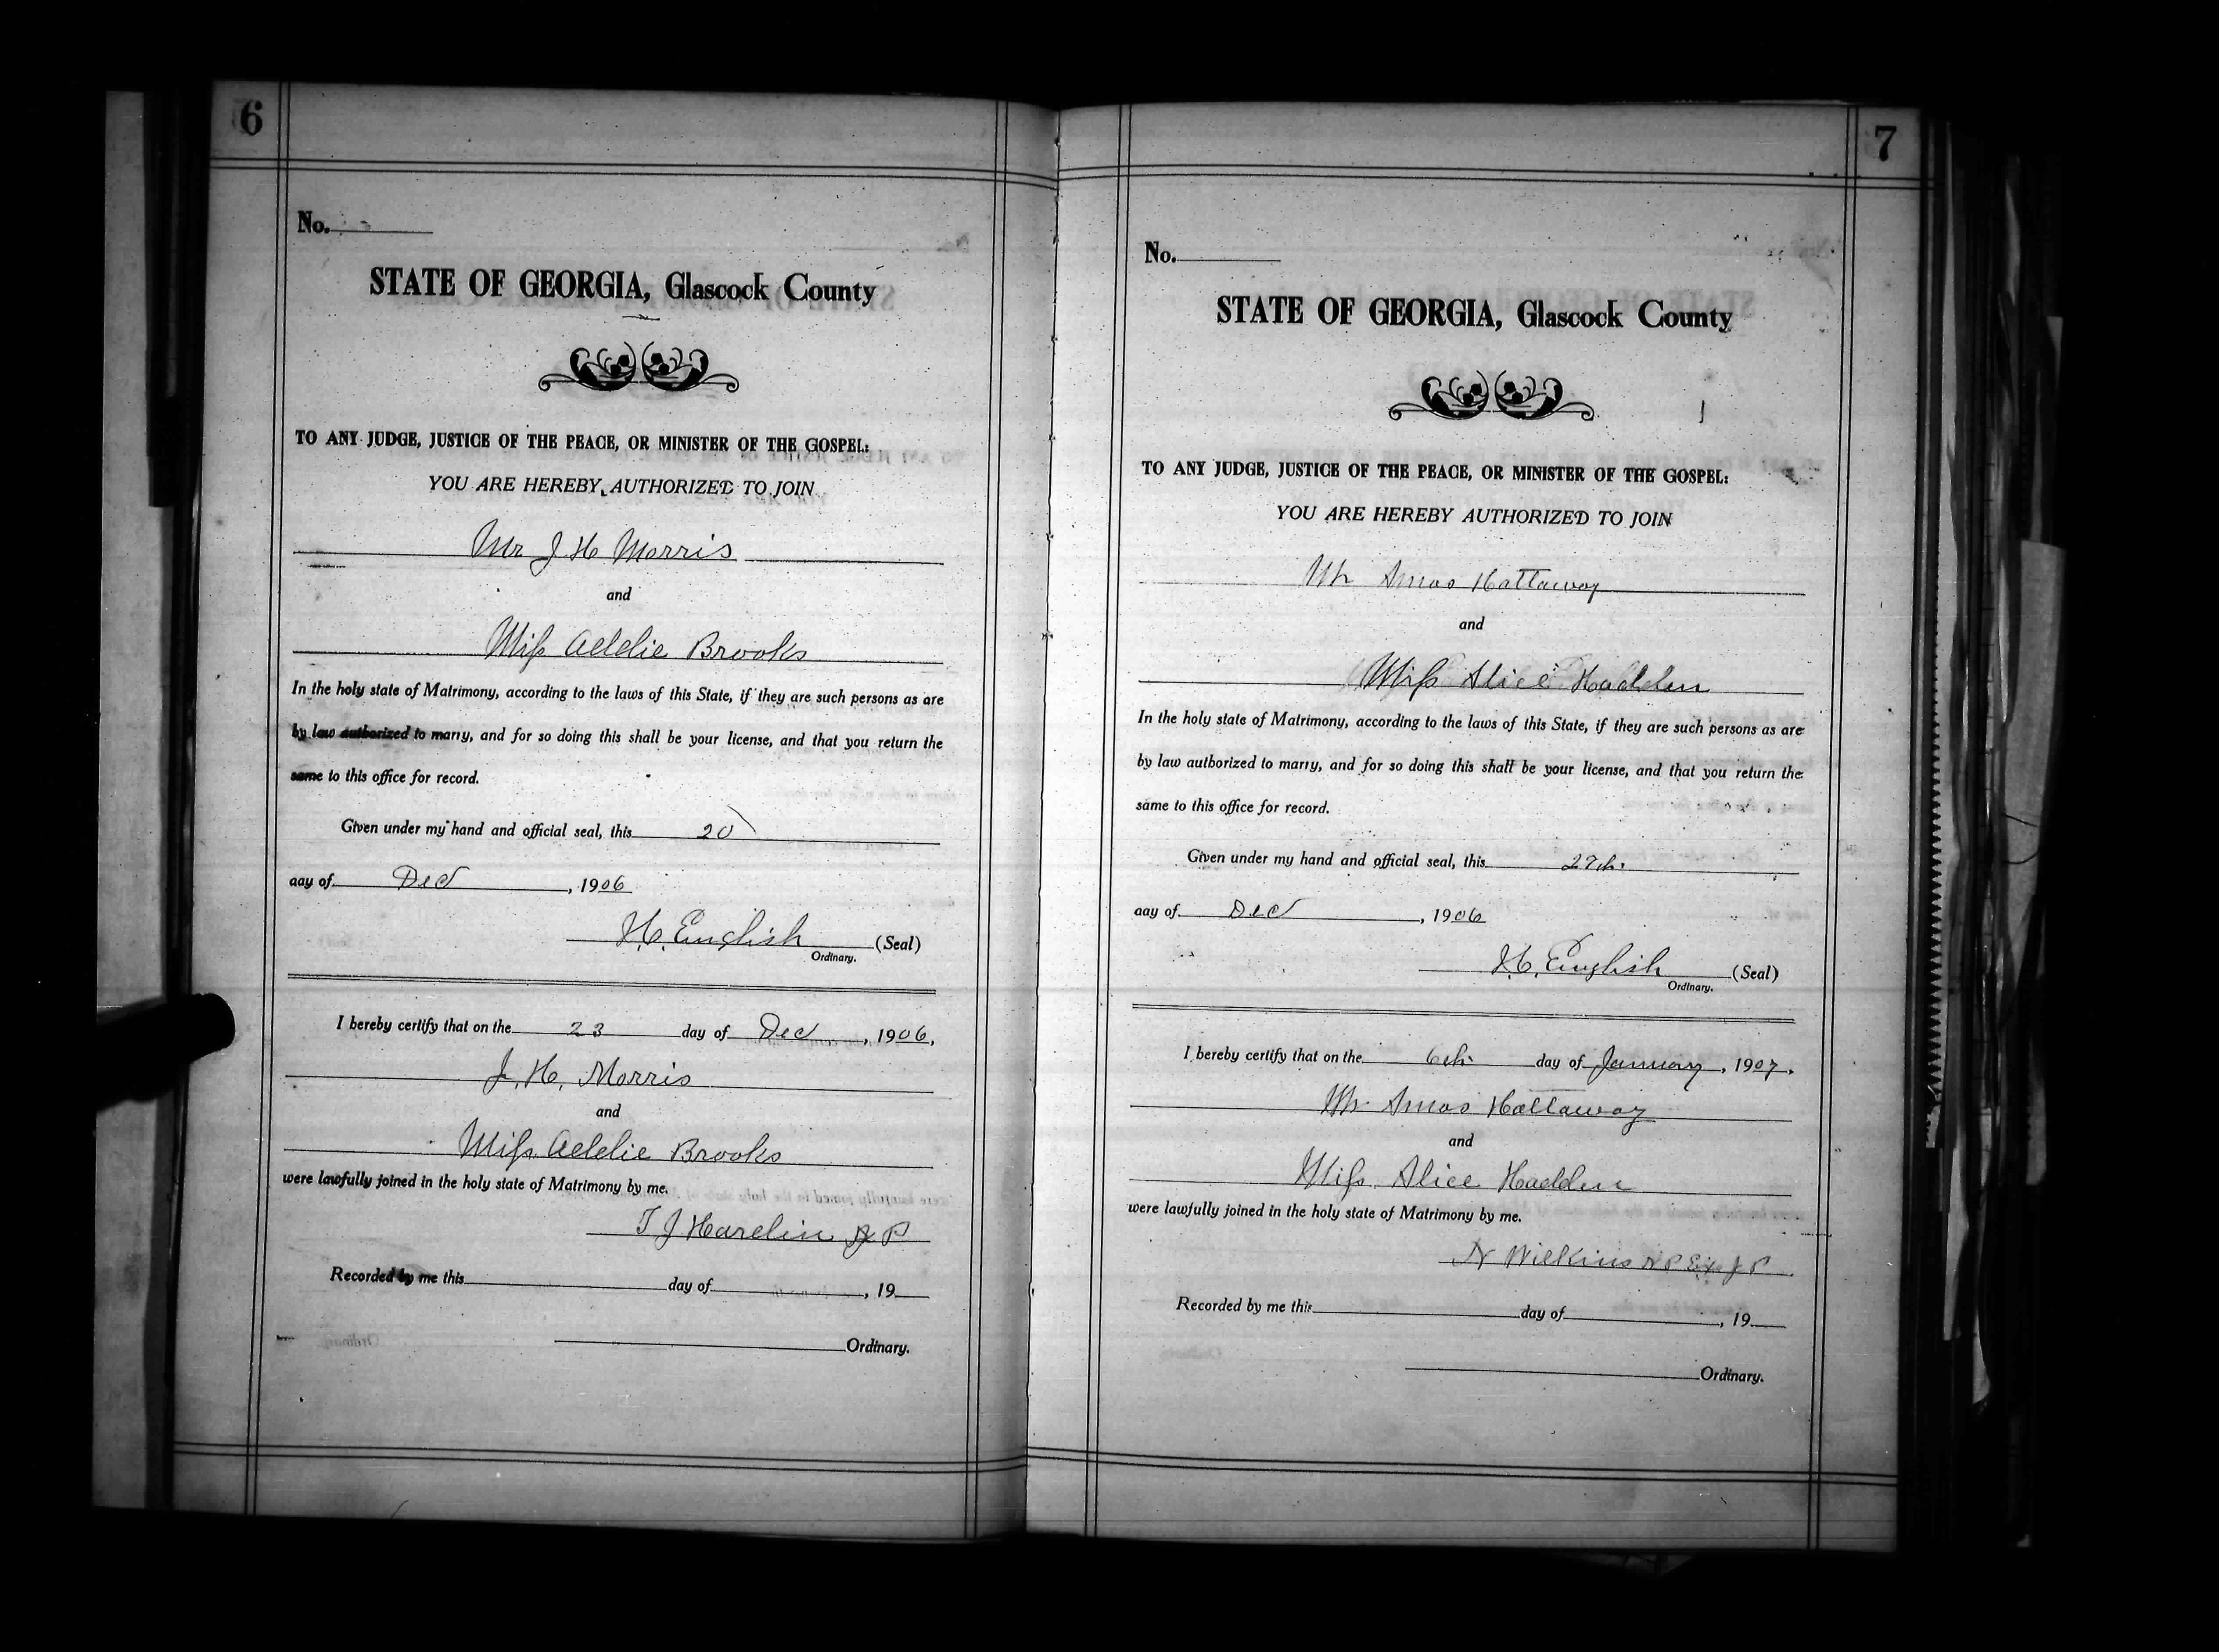 6
No.
STATE OF GEORGIA, Glascock County
TO ANY JUDGE, JUSTICE OF THE PEACE, OR MINISTER OF THE GOSPEL:
YOU ARE HEREBY AUTHORIZED TO JOIN
Mr J H Morris
and
Miss Addie Brooks
In the holy state of Matrimony, according to the laws of this State, if they are such persons as are
by law authorized to marry, and for so doing this shall be your license, and that you return the
same to this office for record.
Given under my hand and official seal, this 20
day of Dec, 1906
H. English (Seal)
Ordinary.
I hereby certify that on the 23 day of Dec, 1906,
J. H. Morris
and
Miss Addie Brooks
were lawfully joined in the holy state of Matrimony by me.
T J Hardin J P
Recorded by me this day of , 19
Ordinary.
7
No.
STATE OF GEORGIA, Glascock County
TO ANY JUDGE, JUSTICE OF THE PEACE, OR MINISTER OF THE GOSPEL:
YOU ARE HEREBY AUTHORIZED TO JOIN
Mr Amos Hattaway
and
Miss Alice Hadden
In the holy state of Matrimony, according to the laws of this State, if they are such persons as are
by law authorized to marry, and for so doing this shall be your license, and that you return the
same to this office for record.
Given under my hand and official seal, this 27th.
day of Dec, 1906
H. English (Seal)
Ordinary.
I hereby certify that on the 6th. day of January, 1907.
Mr. Amos Hattaway
and
Miss. Alice Hadden
were lawfully joined in the holy state of Matrimony by me.
N Wilkins N P Ex J P
Recorded by me this day of , 19
Ordinary.